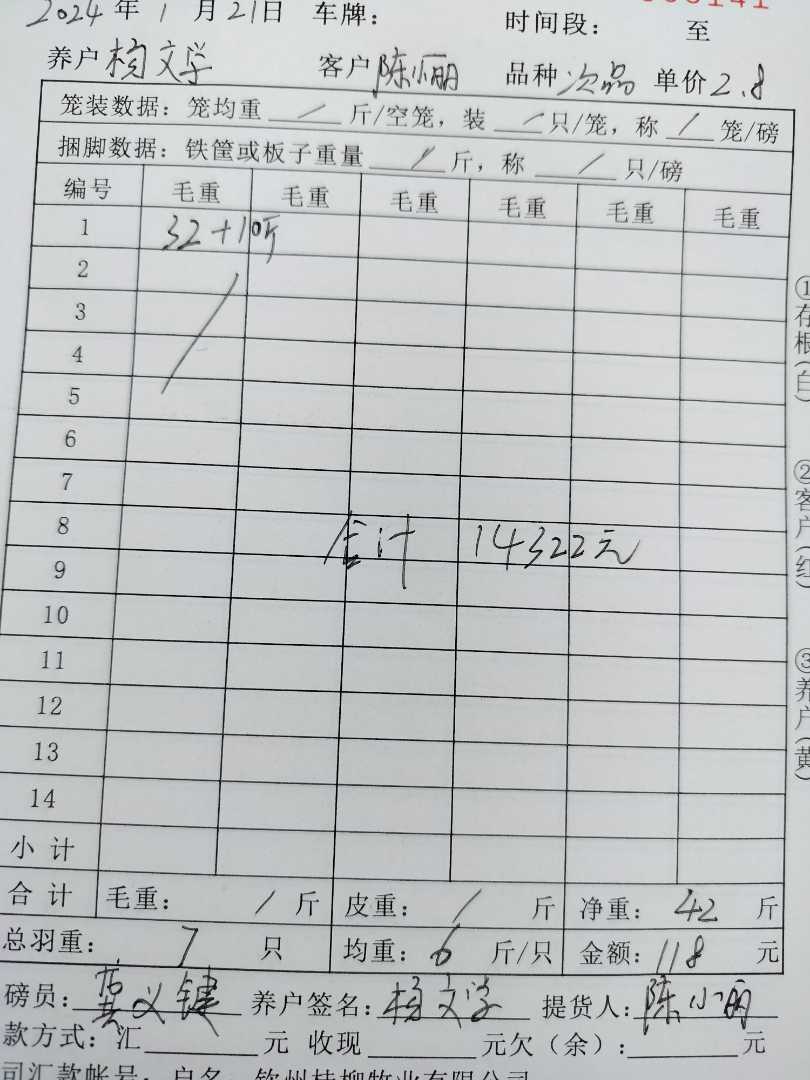 2024年1月21日 车牌： 时间段： 至
养户 杨文学 客户 陈小丽 品种 次品 单价 2.8
笼装数据：笼均重 / 斤/空笼，装 / 只/笼，称 / 笼/磅
捆脚数据：铁筐或板子重量 / 斤，称 / 只/磅
编号 毛重 毛重 毛重 毛重 毛重 毛重
1 32+10斤
2
3
4
5
6
7
8 合计 14322元
9
10
11
12
13
14
小计
合计 毛重： / 斤 皮重： / 斤 净重： 42 斤
总羽重： 7 只 均重： 6 斤/只 金额： 118 元
磅员： 义键 养户签名： 杨文学 提货人： 陈小丽
款方式：汇 元 收现 元欠（余）： 元
司汇款帐号：户名：钦州桂柳牧业有限公司
①存根(白) ②客户(红) ③养户(黄)